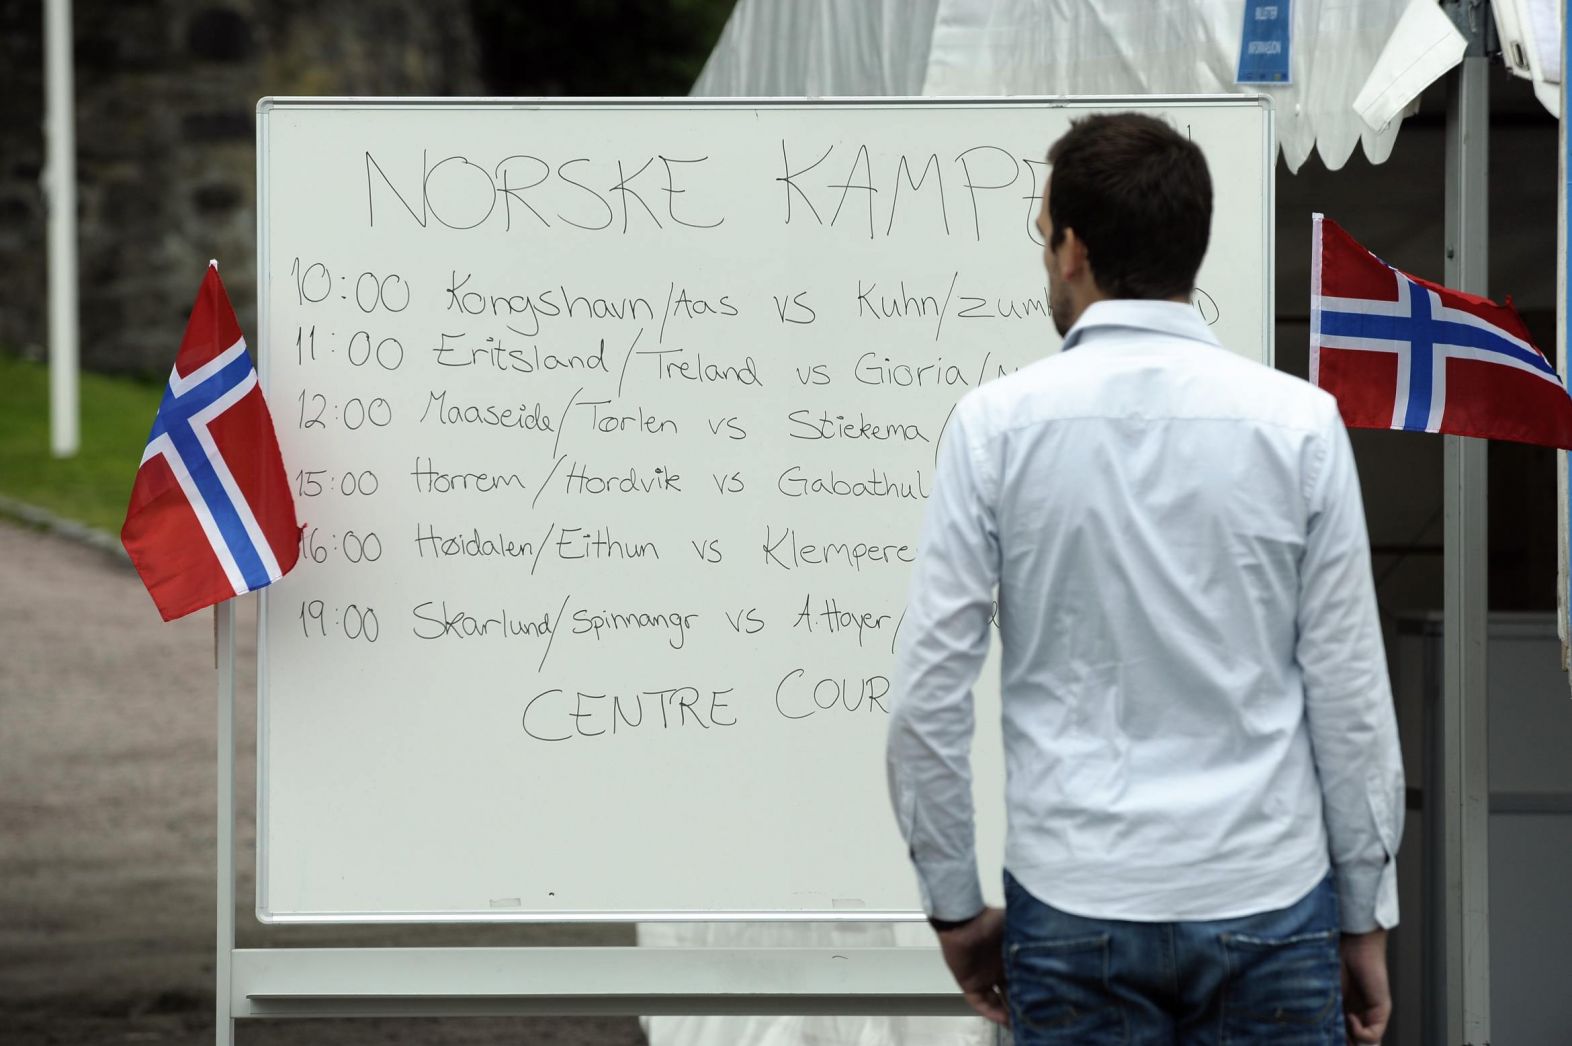 BILLETTER
INFORMASJON
NORSKE KAMPE
10:00 Kongshavn/Aas vs Kuhn/Zum
11:00 Eritsland/Treland vs Gioria/
12:00 Maaseide/Tørlen vs Stiekema/
15:00 Horrem/Hordvik vs Gabathul
16:00 Høidalen/Eithun vs Klempere
19:00 Skarlund/Spinnangr vs A.Høyer/
CENTRE COUR